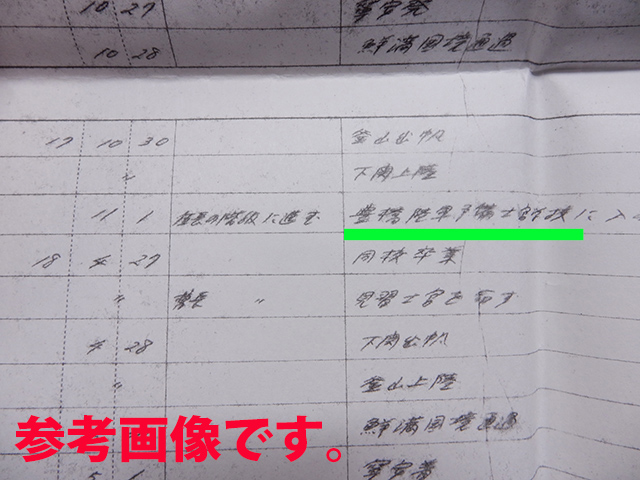 10 27 寧安発
10 28 鮮満国境通過
17 10 30 釜山出帆
〃 下関上陸
11 1 伍長の階級に進む 豊橋陸軍予備士官学校に入
18 4 27 同校卒業
〃 曹長 〃 見習士官を命ず
4 28 下関出帆
〃 釜山上陸
鮮満国境通過
5 1 寧安着
参考画像です。